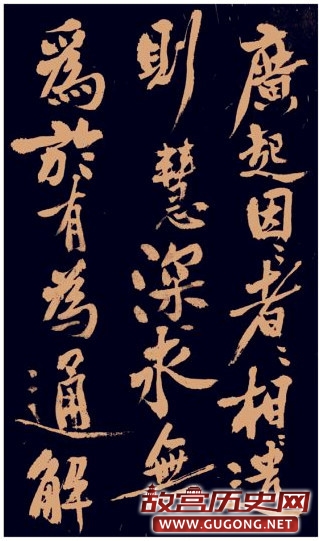 廣起因〻者〻相〻
則慧深求無
爲於有為通解
故宫历史网
WWW.GUGONG.NET